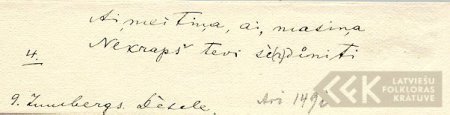 Ai, meitiņa, ai, masiņa
Nekrapš tevi sē(r)důniti
4.
9. Zumbergs. Dēsele. Ari 1491
LATVIEŠU
FOLKLORAS
KRĀTUVE